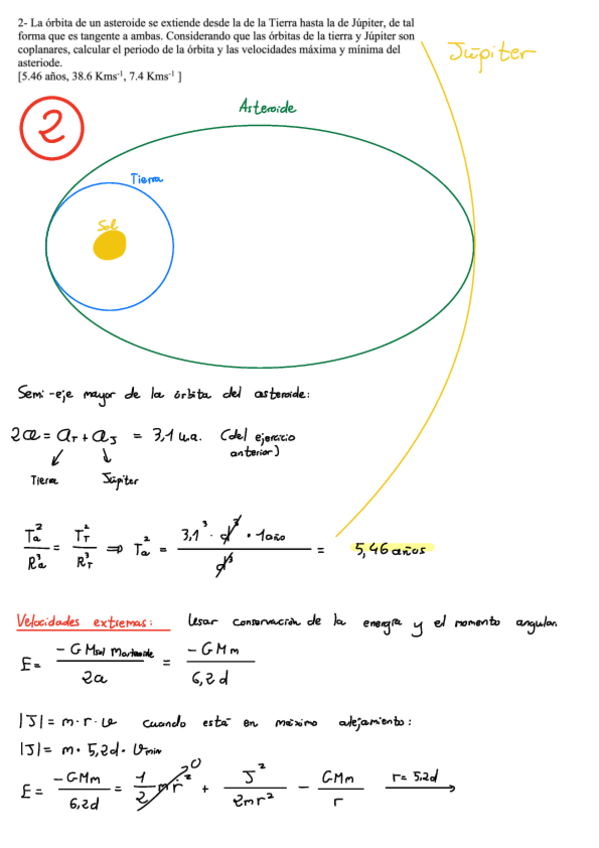 2- La órbita de un asteroide se extiende desde la de la Tierra hasta la de Júpiter, de tal
forma que es tangente a ambas. Considerando que las órbitas de la tierra y Júpiter son
coplanares, calcular el periodo de la órbita y las velocidades máxima y mínima del
asteriode.
[5.46 años, 38.6 Kms⁻¹, 7.4 Kms⁻¹ ]
Júpiter
2
Asteroide
Tierra
Sol
Semi-eje mayor de la órbita del asteroide:
2a = a_T + a_J = 3,1 u.a. (del ejercicio
anterior)
Tierra Júpiter
T_a²/R_a³ = T_T²/R_T³ ⇒ T_a² = 3,1³ · d³ · 1año / d³ = 5,46 años
Velocidades extremas: Usar conservación de la energía y el momento angular.
E = -G Msol Masteroide / 2a = -G M m / 6,2 d
|J| = m · r · v cuando está en máximo alejamiento:
|J| = m · 5,2d · vmin
E = -GMm / 6,2d = 1/2 m ṙ² 0 + J² / 2mr² - GMm / r r = 5,2d →